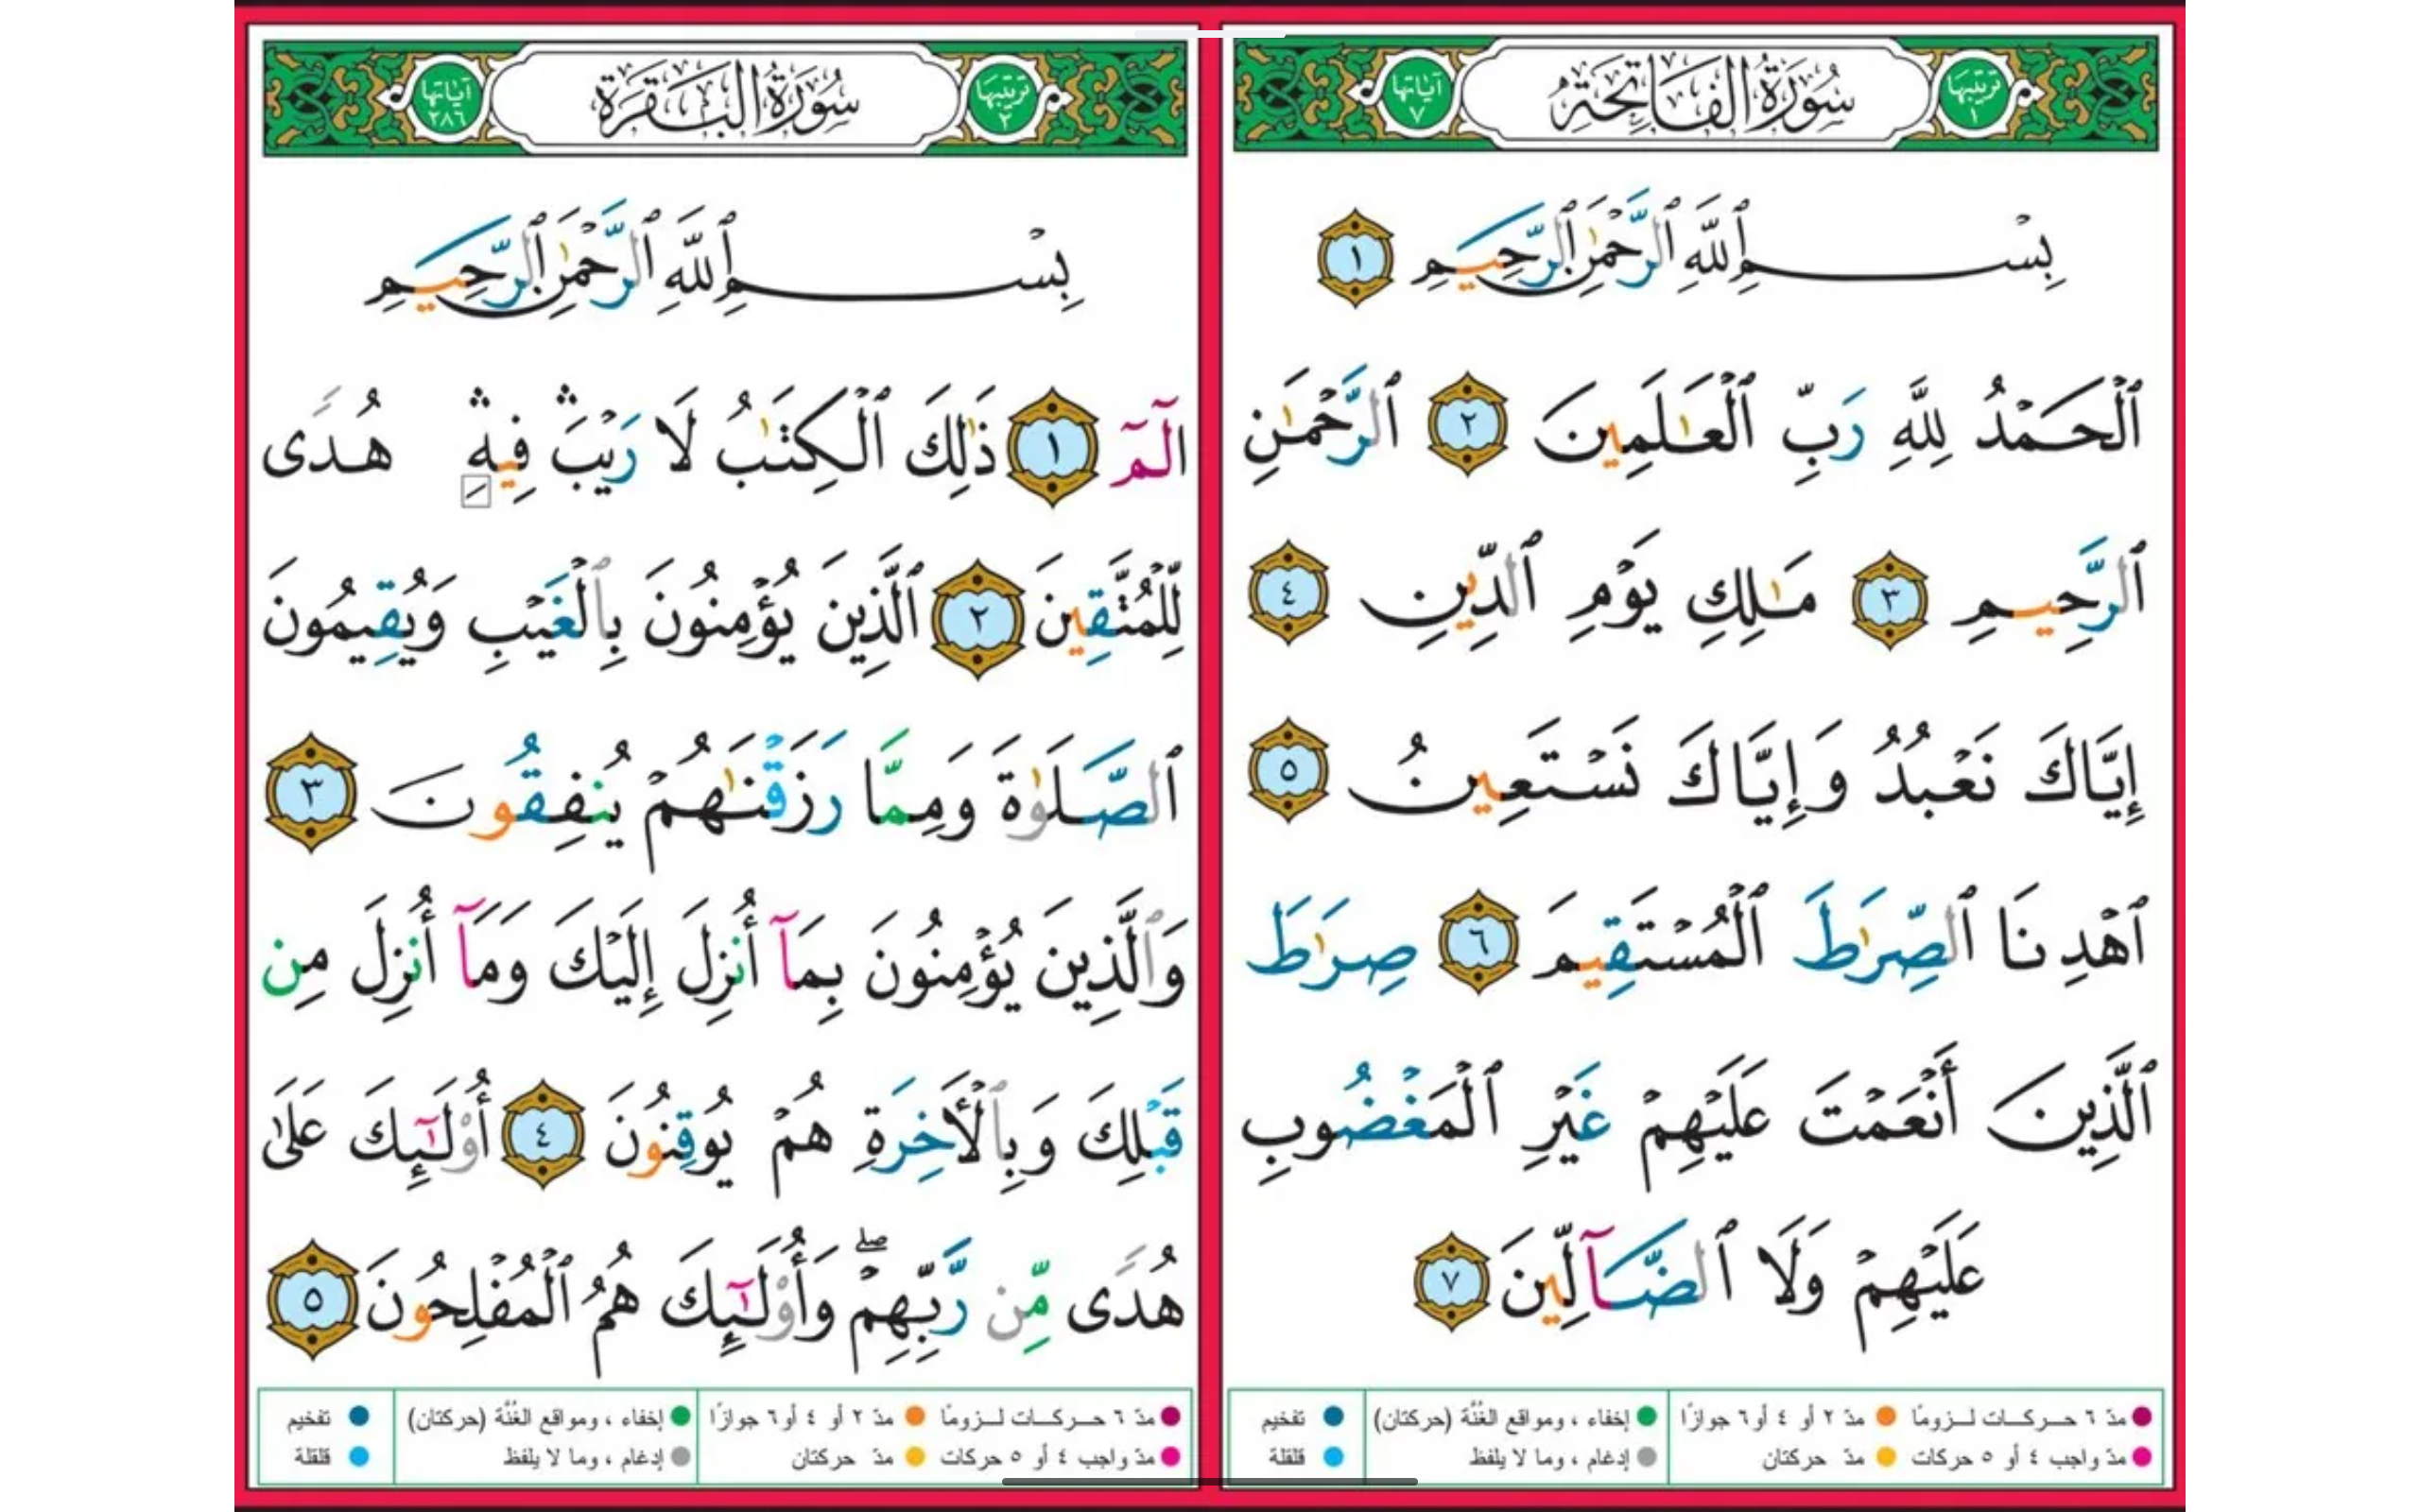 ترتيبها ١
سُورَةُ الفَاتِحَةِ
آياتها ٧
بِسْمِ ٱللَّهِ ٱلرَّحْمَٰنِ ٱلرَّحِيمِ ١
ٱلْحَمْدُ لِلَّهِ رَبِّ ٱلْعَـٰلَمِينَ ٢ ٱلرَّحْمَـٰنِ
ٱلرَّحِيمِ ٣ مَـٰلِكِ يَوْمِ ٱلدِّينِ ٤
إِيَّاكَ نَعْبُدُ وَإِيَّاكَ نَسْتَعِينُ ٥
ٱهْدِنَا ٱلصِّرَٰطَ ٱلْمُسْتَقِيمَ ٦ صِرَٰطَ
ٱلَّذِينَ أَنْعَمْتَ عَلَيْهِمْ غَيْرِ ٱلْمَغْضُوبِ
عَلَيْهِمْ وَلَا ٱلضَّآلِّينَ ٧
مدّ ٦ حـركـات لـزومًا مدّ ٢ أو ٤ أو ٦ جوازًا إخفاء ، ومواقع الغُنَّة (حركتان) تفخيم
مدّ واجب ٤ أو ٥ حركات مدّ حركتان إدغام ، وما لا يلفظ قلقلة
ترتيبها ٢
سُورَةُ البَقَرَةِ
آياتها ٢٨٦
بِسْمِ ٱللَّهِ ٱلرَّحْمَٰنِ ٱلرَّحِيمِ
الٓمٓ ١ ذَٰلِكَ ٱلْكِتَـٰبُ لَا رَيْبَۛ فِيهِۛ هُدًى
لِّلْمُتَّقِينَ ٢ ٱلَّذِينَ يُؤْمِنُونَ بِٱلْغَيْبِ وَيُقِيمُونَ
ٱلصَّلَوٰةَ وَمِمَّا رَزَقْنَـٰهُمْ يُنفِقُونَ ٣
وَٱلَّذِينَ يُؤْمِنُونَ بِمَآ أُنزِلَ إِلَيْكَ وَمَآ أُنزِلَ مِن
قَبْلِكَ وَبِٱلْأَخِرَةِ هُمْ يُوقِنُونَ ٤ أُو۟لَـٰٓئِكَ عَلَىٰ
هُدًى مِّن رَّبِّهِمْۖ وَأُو۟لَـٰٓئِكَ هُمُ ٱلْمُفْلِحُونَ ٥
مدّ ٦ حـركـات لـزومًا مدّ ٢ أو ٤ أو ٦ جوازًا إخفاء ، ومواقع الغُنَّة (حركتان) تفخيم
مدّ واجب ٤ أو ٥ حركات مدّ حركتان إدغام ، وما لا يلفظ قلقلة